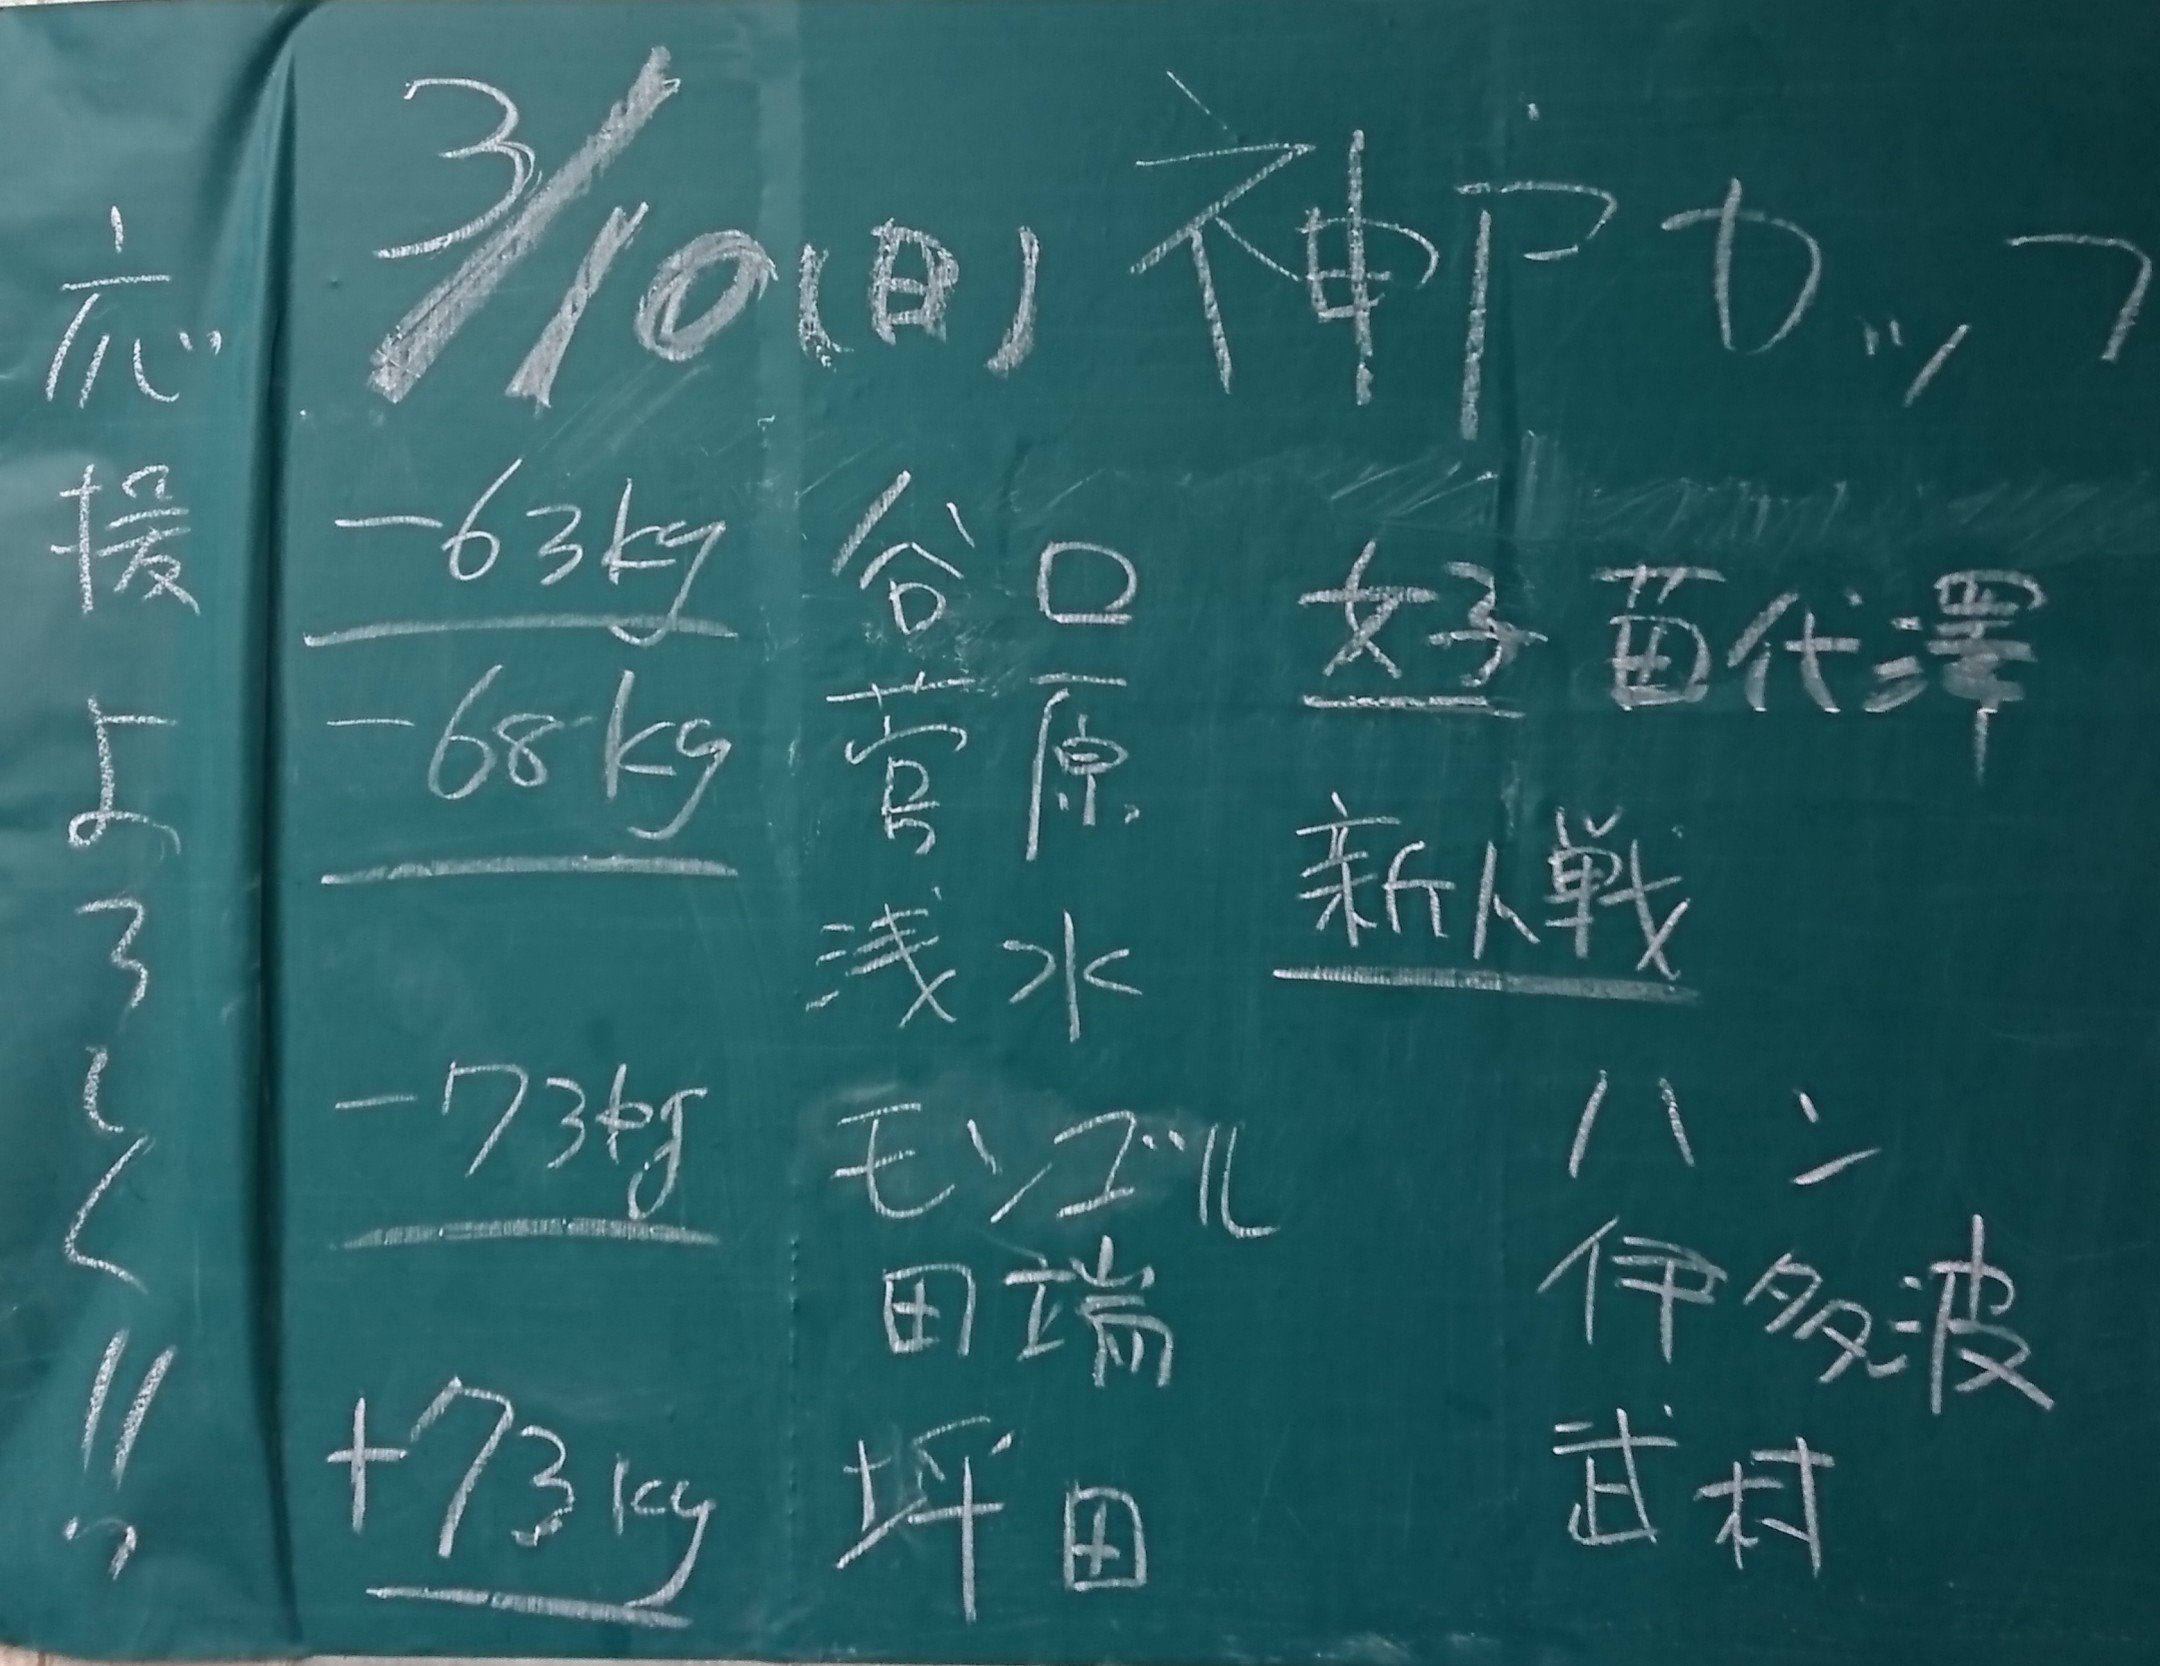 3/10(日) 神戸カップ
-63kg 谷口
-68kg 菅原
浅水
-73kg モンゴル
田端
+73kg 坪田
女子 苗代澤
新人戦
ハン
伊多波
武村
応援よろしく!!